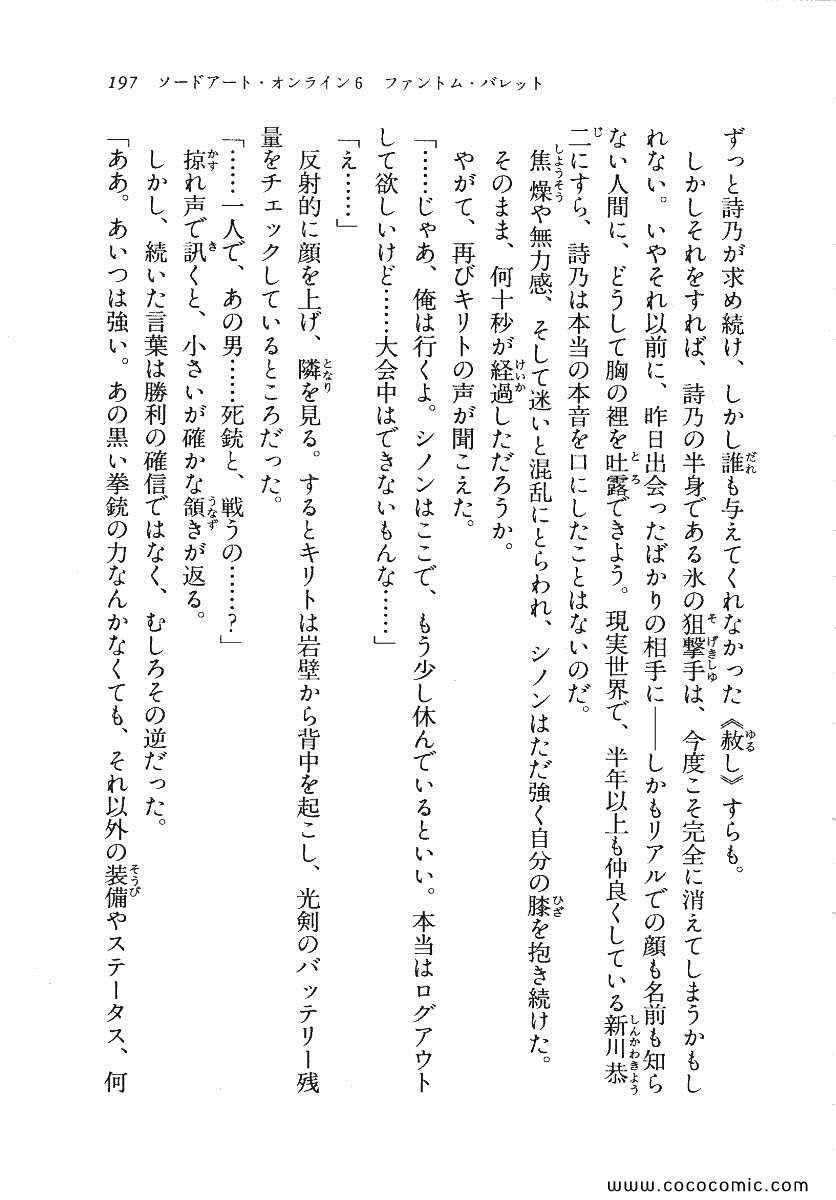 197　ソードアート・オンライン6　ファントム・バレット
ずっと詩乃が求め続け、しかし誰も与えてくれなかった《赦し》すらも。
しかしそれをすれば、詩乃の半身である氷の狙撃手は、今度こそ完全に消えてしまうかもし
れない。いやそれ以前に、昨日出会ったばかりの相手に――しかもリアルでの顔も名前も知ら
ない人間に、どうして胸の裡を吐露できよう。現実世界で、半年以上も仲良くしている新川恭
二にすら、詩乃は本当の本音を口にしたことはないのだ。
焦燥や無力感、そして迷いと混乱にとらわれ、シノンはただ強く自分の膝を抱き続けた。
そのまま、何十秒が経過しただろうか。
やがて、再びキリトの声が聞こえた。
「……じゃあ、俺は行くよ。シノンはここで、もう少し休んでいるといい。本当はログアウト
して欲しいけど……大会中はできないもんな……」
「え……」
反射的に顔を上げ、隣を見る。するとキリトは岩壁から背中を起こし、光剣のバッテリー残
量をチェックしているところだった。
「……一人で、あの男……死銃と、戦うの……？」
掠れ声で訊くと、小さいが確かな頷きが返る。
しかし、続いた言葉は勝利の確信ではなく、むしろその逆だった。
「ああ。あいつは強い。あの黒い拳銃の力なんかなくても、それ以外の装備やステータス、何
http://www.cococomic.com/